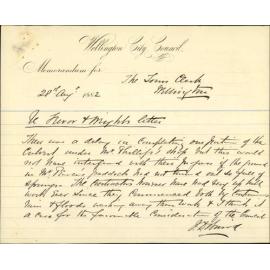 Wellington City Council.
Memorandum for
The Town Clerk
Wellington
28th Augt. 1882
Re Trevor & Wright's letter
There was a delay in completing one portion of the
Culvert under Mr Phillips's Shop but this would
not have interfered with their progress if the ground
in Mr Paddock had not turned out so full of
Springs. The Contractors however have had very up hill
work ever since they commenced both by continuous
rain & floods washing away their work & I think it
a case for the favourable Consideration of the Council